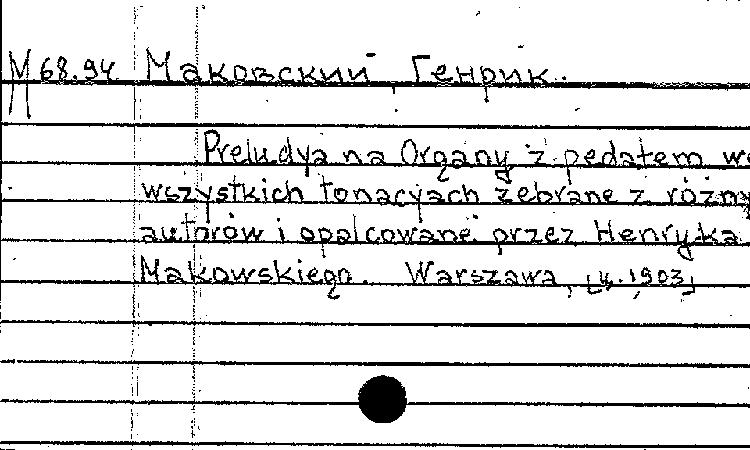 М 68.94 Маковский, Генрик.
Preludya na Organy z pedałem we
wszystkich tonacyach zebrane z różny
autorów i opalcowane przez Henryka
Makowskiego. Warszawa, [ц. 1903]